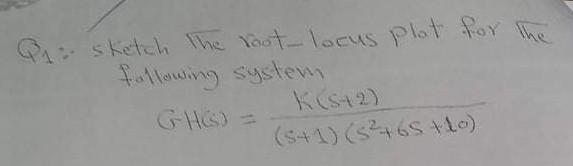 Q1:- sketch The root-locus plot for The
following system
GH(s) = K(s+2)
(s+1)(s²+6s+10)